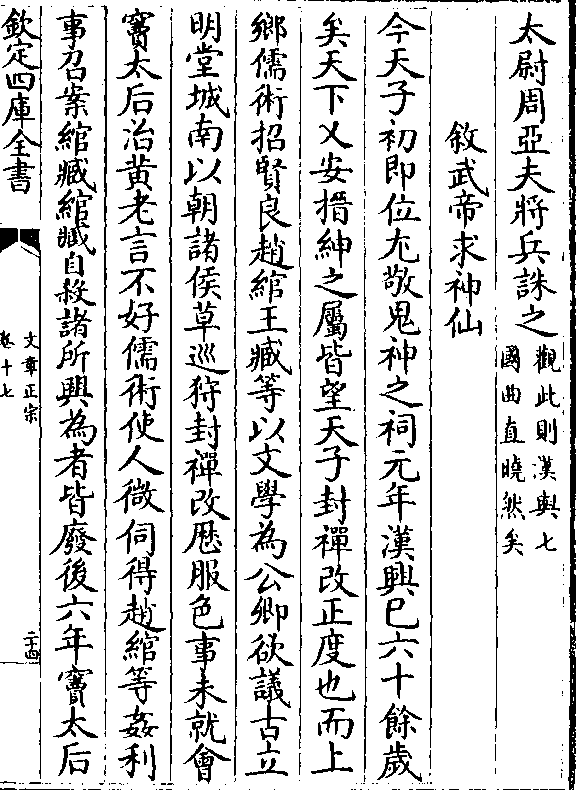 太尉周亞夫將兵誅之觀此則漢與七
國曲直曉然矣
敘武帝求神仙
今天子初即位尤敬鬼神之祠元年漢興已六十餘歲
矣天下乂安搢紳之屬皆望天子封禪改正度也而上
鄉儒術招賢良趙綰王臧等以文學為公卿欲議古立
明堂城南以朝諸侯草巡狩封禪改厯服色事未就會
竇太后治黄老言不好儒術使人微伺得趙綰等姦利
事召案綰臧綰臧自殺諸所興為者皆廢後六年竇太后
欽定四庫全書
文章正宗
卷十七
二十四